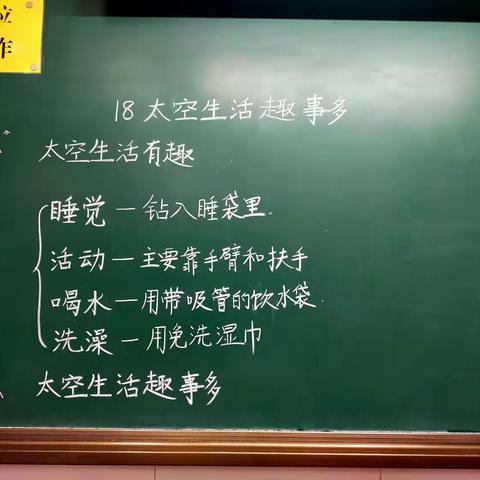 位
作
18 太空生活趣事多
太空生活有趣
睡觉—钻入睡袋里.
活动—主要靠手臂和扶手
喝水—用带吸管的饮水袋.
洗澡—用免洗湿巾
太空生活趣事多